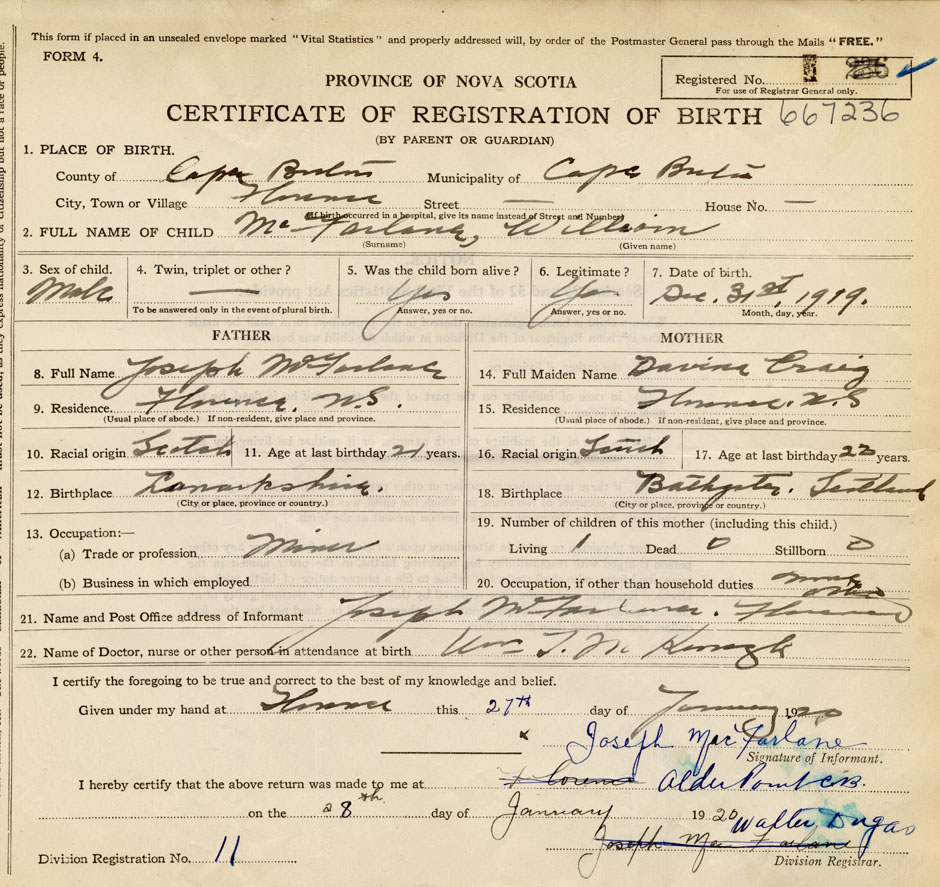 This form if placed in an unsealed envelope marked "Vital Statistics" and properly addressed will, by order of the Postmaster General pass through the Mails "FREE."
FORM 4.
PROVINCE OF NOVA SCOTIA
Registered No.
For use of Registrar General only.
CERTIFICATE OF REGISTRATION OF BIRTH 667236
(BY PARENT OR GUARDIAN)
1. PLACE OF BIRTH.
County of Cape Breton Municipality of Cape Breton
City, Town or Village Florence Street — House No. —
If birth occurred in a hospital, give its name instead of Street and Number
2. FULL NAME OF CHILD McFarlane, William
(Surname) (Given name)
3. Sex of child. 4. Twin, triplet or other? 5. Was the child born alive? 6. Legitimate? 7. Date of birth.
Male — Yes Yes Dec. 31st, 1919.
To be answered only in the event of plural birth. Answer, yes or no. Answer, yes or no. Month, day, year.
FATHER MOTHER
8. Full Name Joseph McFarlane 14. Full Maiden Name Davina Craig
9. Residence. Florence. N.S. 15. Residence Florence. N.S
(Usual place of abode.) If non-resident, give place and province. (Usual place of abode.) If non-resident, give place and province.
10. Racial origin Scotch 11. Age at last birthday 21 years. 16. Racial origin 17. Age at last birthday 22 years.
12. Birthplace Lanarkshire. 18. Birthplace Scotland
(City or place, province or country.) (City or place, province or country.)
13. Occupation:— 19. Number of children of this mother (including this child.)
(a) Trade or profession Miner Living 1 Dead 0 Stillborn 0
(b) Business in which employed 20. Occupation, if other than household duties
21. Name and Post Office address of Informant Joseph McFarlane. Florence
22. Name of Doctor, nurse or other person in attendance at birth Wm T. Mc Keough
I certify the foregoing to be true and correct to the best of my knowledge and belief.
Given under my hand at Florence this 27th day of January 1920
Joseph MacFarlane
Signature of Informant.
I hereby certify that the above return was made to me at Florence Alder Point CB.
on the 28th day of January 1920 Walter Dugas
Joseph Mac Farlane
Division Registration No. 11 Division Registrar.